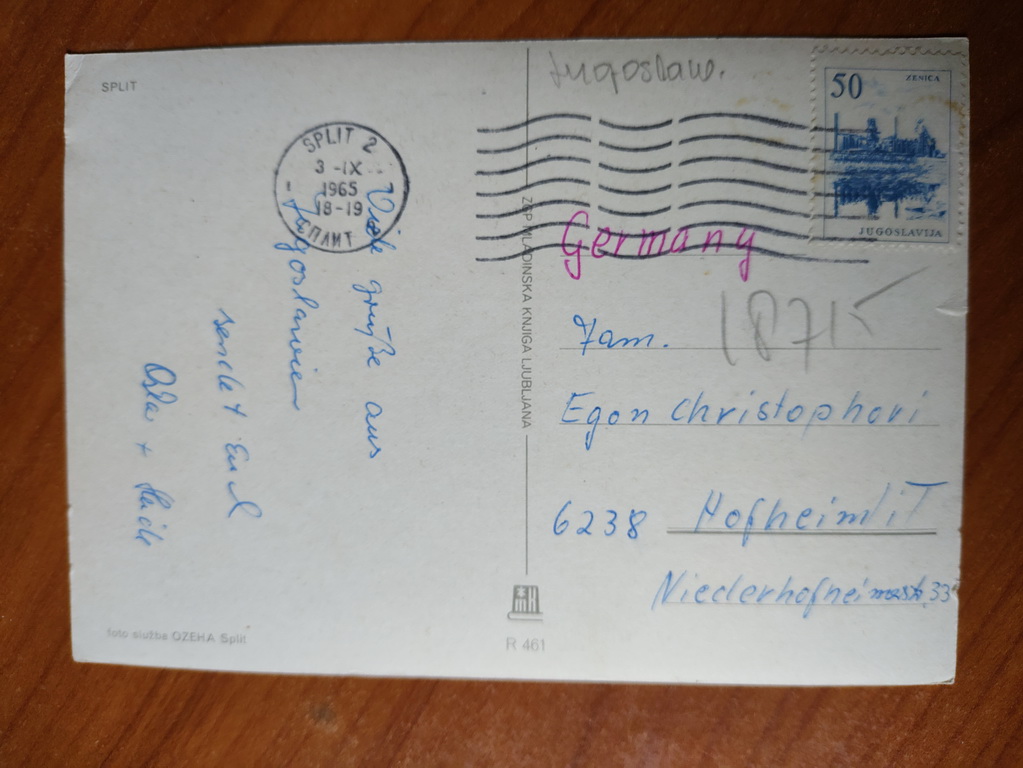 SPLIT
Jugoslaw.
50
ZENICA
JUGOSLAVIJA
SPLIT 2
3 -IX
1965
18-19
СПЛИТ
Viele grüße aus
Jugoslawien
sendet Euch
+ Heidi
Germany
18715
Fam.
Egon Christophori
6238 Hofheim/iT
Niederhofheimerstr. 33
ZGP MLADINSKA KNJIGA LJUBLJANA
MK
R 461
foto služba OZEHA Split